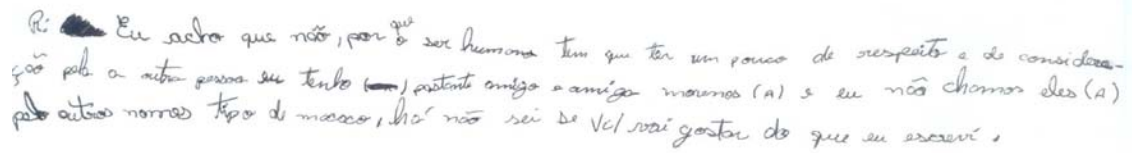 R: Eu acho que não, por que o ser humano tem que ter um pouco de respeito e de considera-
ção pela a outra pessoa eu tenho bastante amigo e amiga morenos (A) e eu não chamos eles (A)
pelo outros nomes tipo de macaco, há não sei se Vc/ vai gostar do que eu escreví.